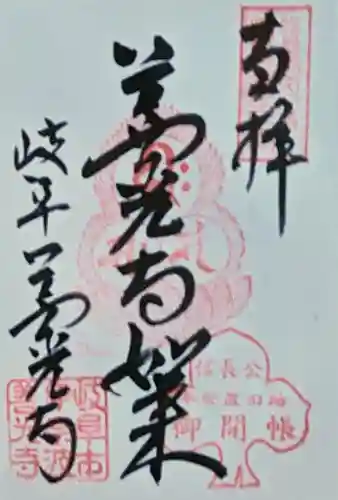 奉拝
善光寺如来
岐阜善光寺
信長公
安置旧跡
御開帳
岐阜市
伊奈波
善光寺